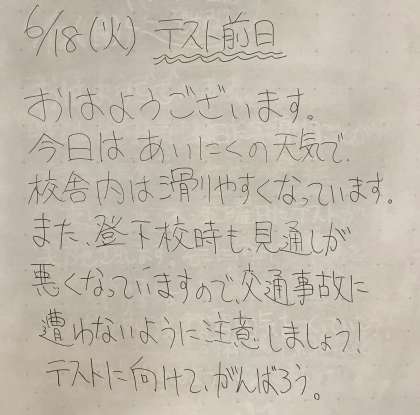 6/18(火) テスト前日
おはようございます。
今日は、あいにくの天気で、
校舎内は滑りやすくなっています。
また、登下校時も、見通しが
悪くなっていますので、交通事故に
遭わないように注意しましょう!
テストに向けて、がんばろう。